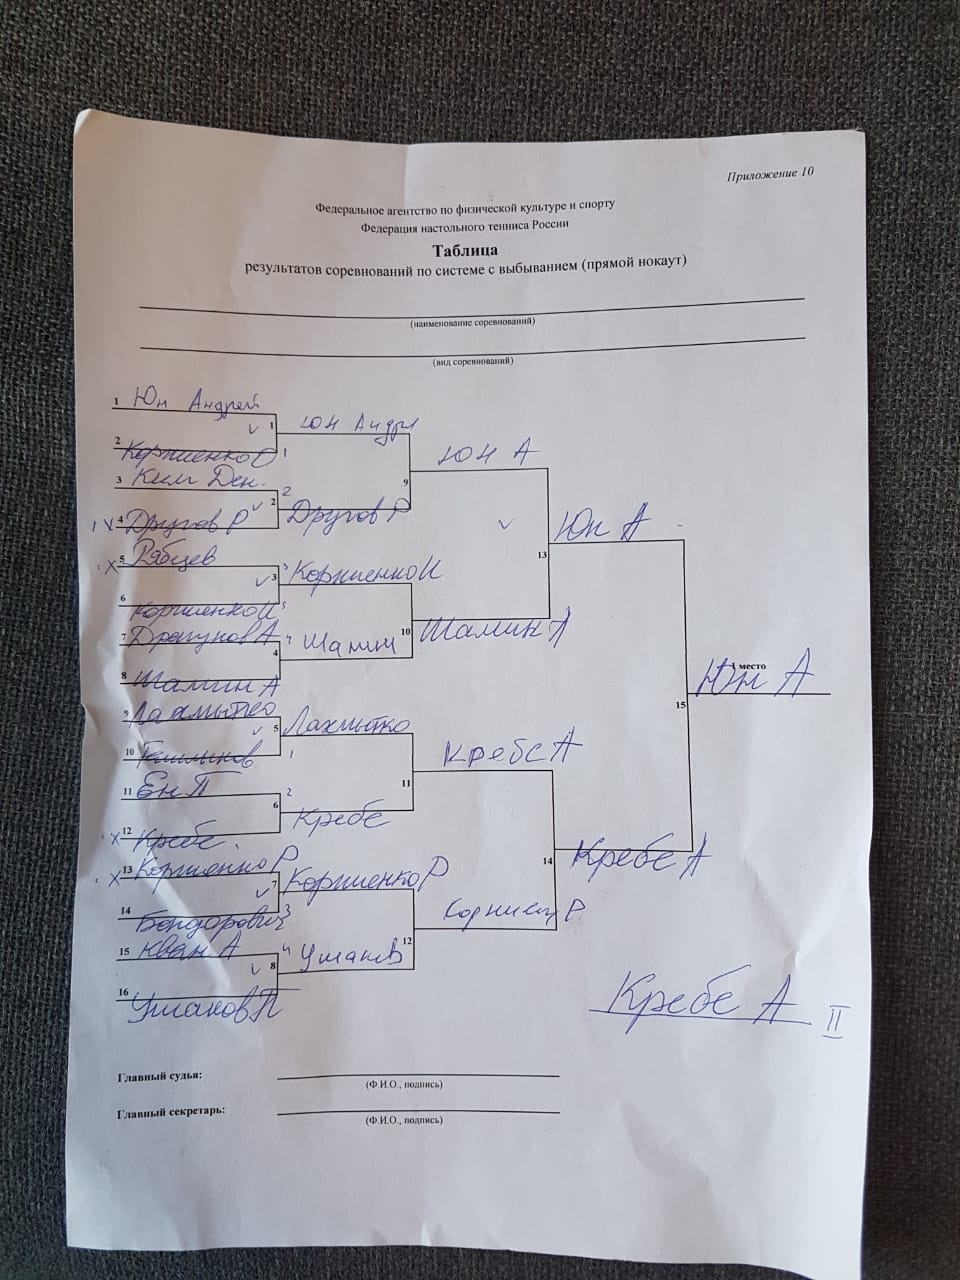 Приложение 10
Федеральное агентство по физической культуре и спорту
Федерация настольного тенниса России
Таблица
результатов соревнований по системе с выбыванием (прямой нокаут)
(наименование соревнований)
(вид соревнований)
1 Юн Андрей
1 Юн Андрей
2 Корниенко О 1
Юн А
3 Ким Ден. 2
9
2 Другов Р
4 Другов Р
Юн А
13
5 Рябцев 3
3 Корниенко И
6 Корниенко И 3
7 Драгунов А 4
Шамин
10 Шамин А
4
8 Шамин А
1 место
Юн А
15
9 Лахмытко
5 Лахмытко
10 1
Кребс А
11 Ен П 2
11
6 Кребс
12 Кребс
14 Кребс А
13 Корниенко Р
7 Корниенко Р
14 Бондорович 3
Корниенко Р
15 Кван А 4
12
8 Ушаков
16 Ушаков П
Кребс А II
Главный судья:
(Ф.И.О., подпись)
Главный секретарь:
(Ф.И.О., подпись)